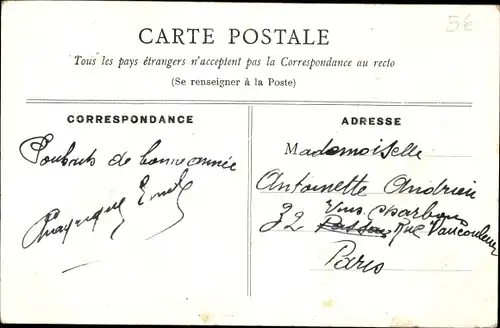 5€
CARTE POSTALE
Tous les pays étrangers n'acceptent pas la Correspondance au recto
(Se renseigner à la Poste)
CORRESPONDANCE
ADRESSE
Souhaits de bonne année
Mademoiselle
Antoinette Andrieu
Vins charbons
32 Rue Vaucouleur
Paris